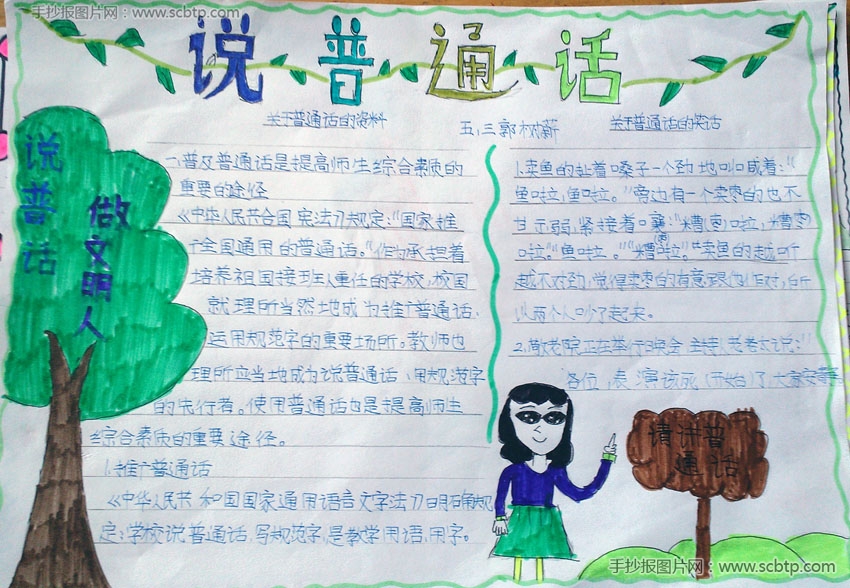 手抄报图片网：www.scbtp.com
说普通话
关于普通话的资料
五、三郭树薪
关于普通话的笑话
说普话
做文明人
一、普及普通话是提高师生综合素质的
重要的途径
《中华人民共合国宪法》规定："国家推
广全国通用的普通话。"作为承担着
培养祖国接班人重任的学校,校园
就理所当然地成为推广普通话、
运用规范字的重要场所。教师也
理所应当地成为说普通话、用规范字
的先行者。使用普通话也是提高师生
综合素质的重要途径。
1.推广普通话
《中华人民共和国国家通用语言文字法》明确规
定：学校说普通话、写规范字,是教学用语、用字。
1.卖鱼的扯着嗓子一个劲地叫喊着："
鱼啦,鱼啦。"旁边有一个卖枣的也不
甘示弱,紧接着嚷："糟(枣)啦,糟枣
啦。"鱼啦。""糟啦。"卖鱼的越听
越不对劲,觉得卖枣的有意跟他作对,所
以两个人吵了起来。
2.敬老院正在举行晚会,主持人老老太说："
各位,表演该死(开始)了,大家安静
请讲普
通话
手抄报图片网：www.scbtp.com